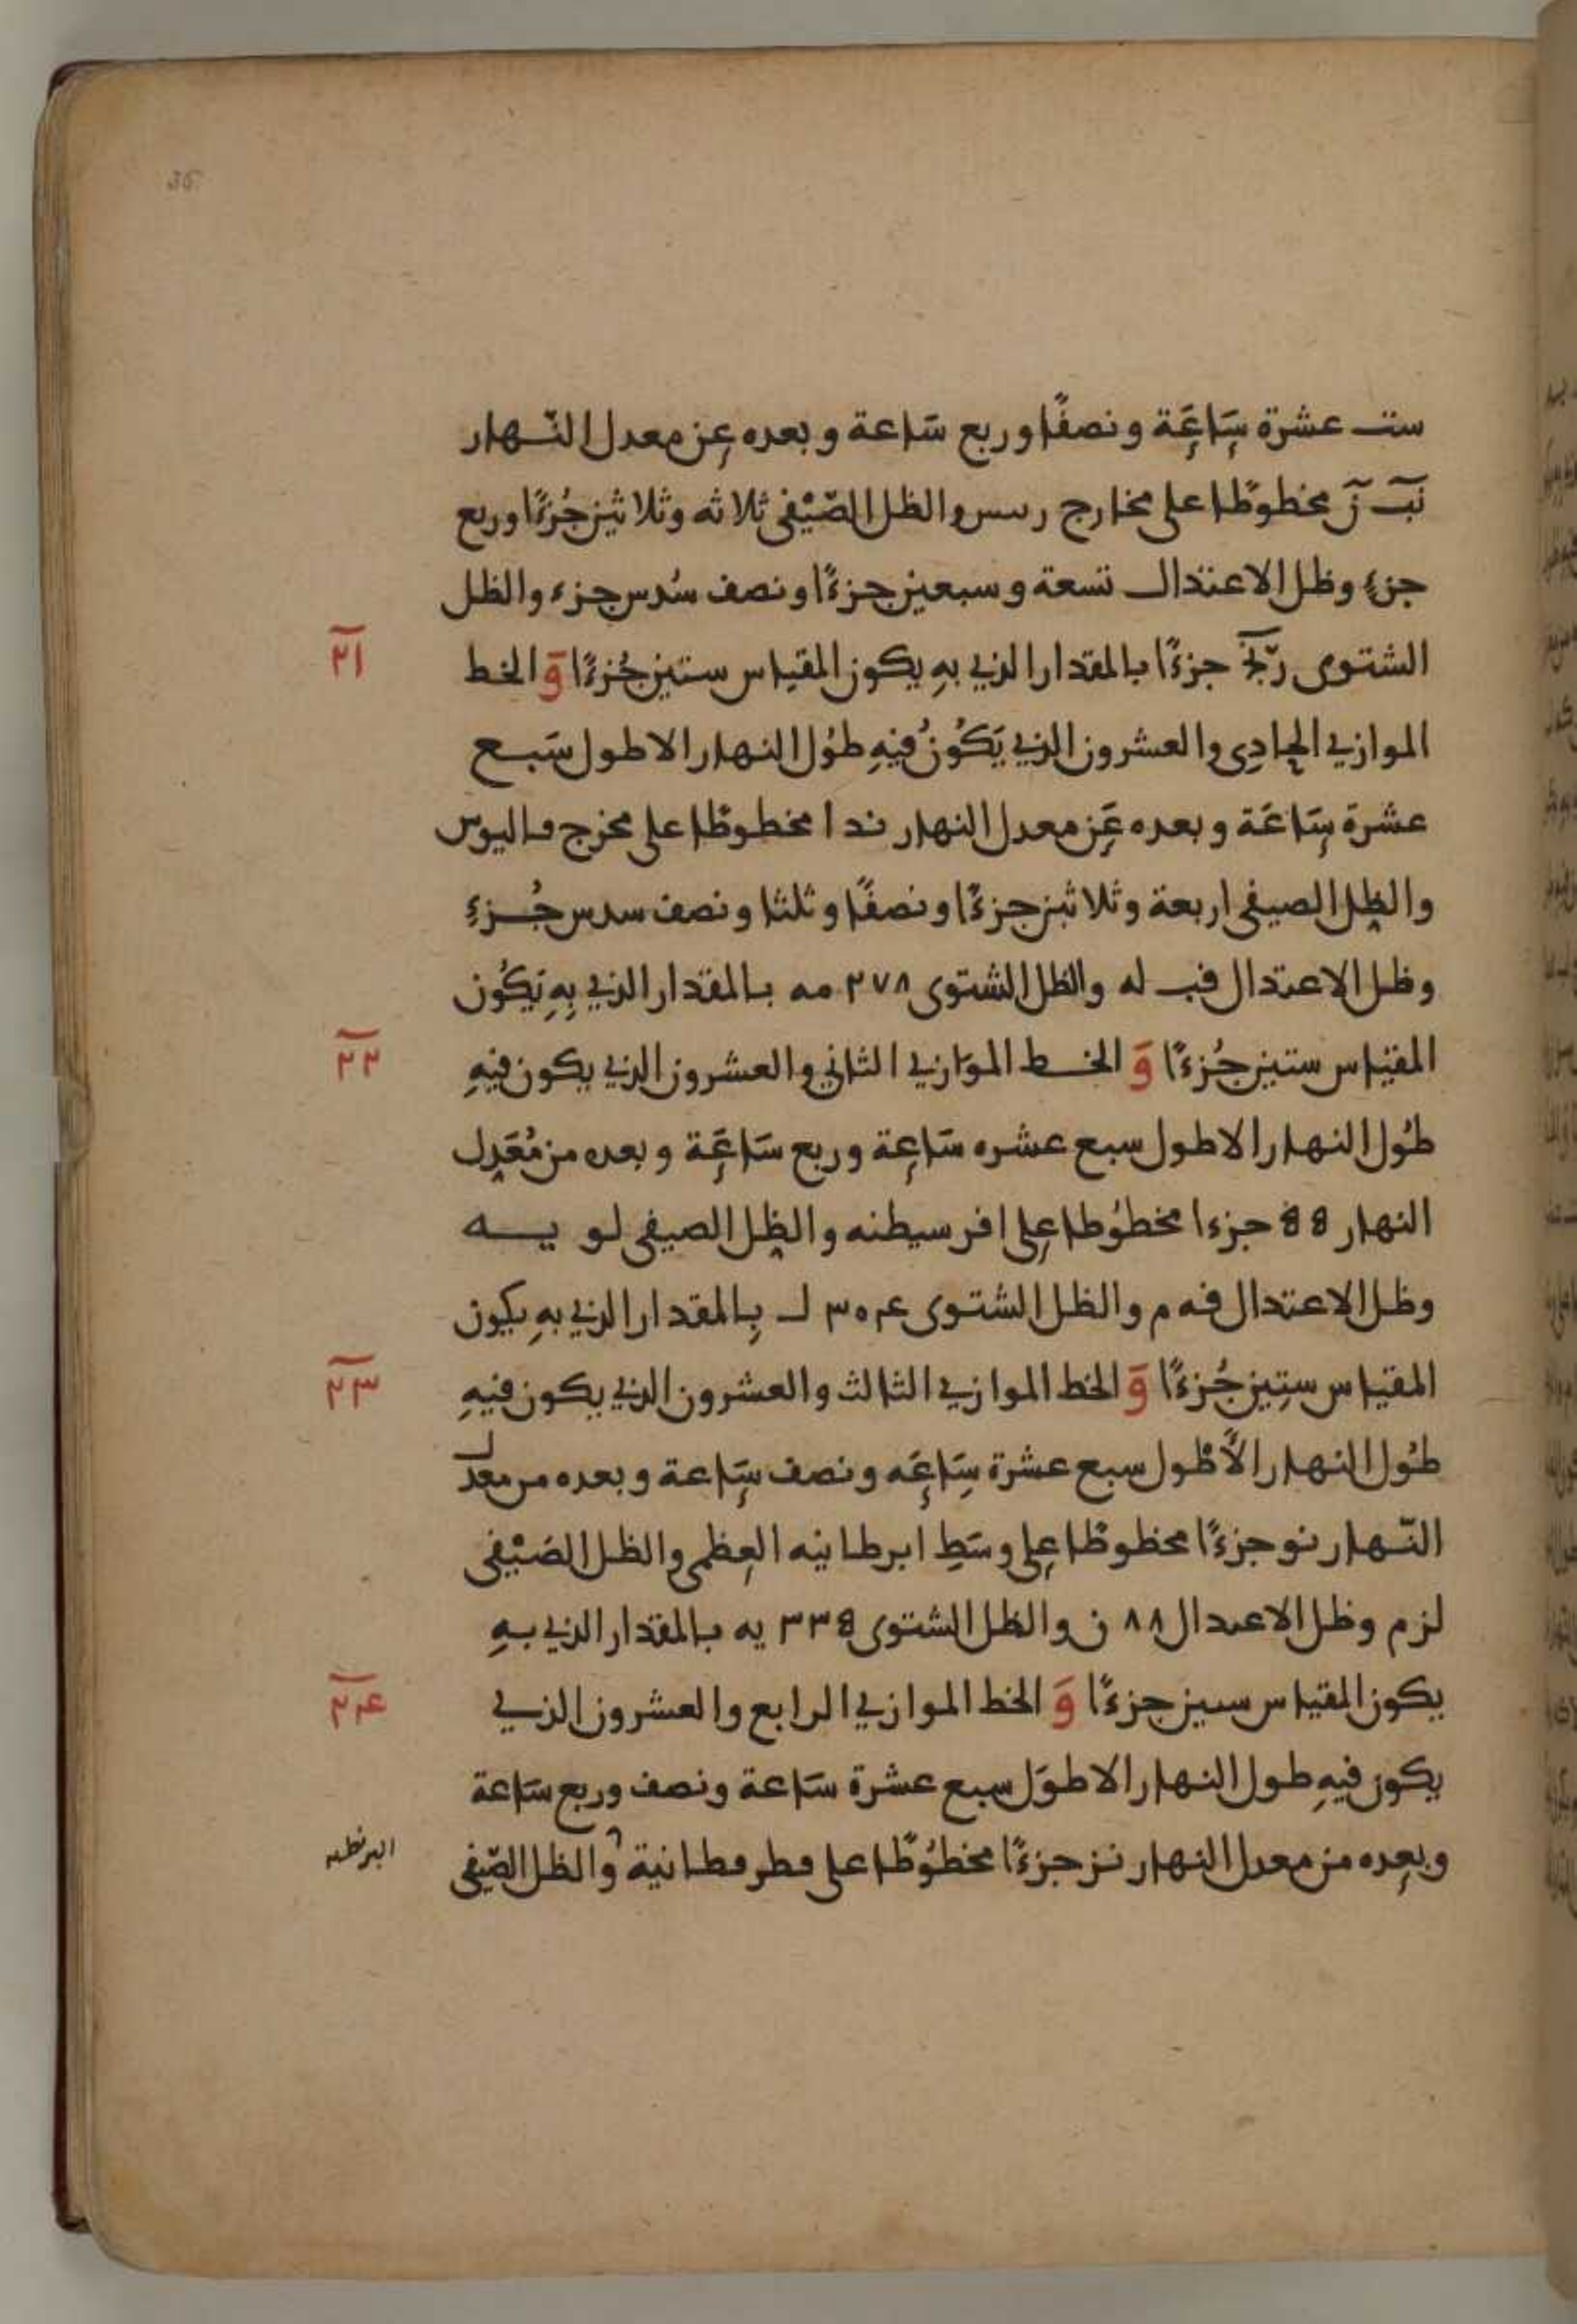 ست عشرة سَاعَة ونصفًا وربع سَاعة وبعده عن معدل النّهار
نَب نَ مخطوطًا على مخارج ريىس والظل الصّيْفى ثلاثه وثلاثين جُزءًا وربع
جزءٍ وظل الاعتدال تسعة وسبعين جزءًا ونصف سُدس جزء والظل
الشتوى جزءًا بالمقدار الذي بهِ يكون المقياس ستين جُزءًا وَ الخط
٢١
الموازي الحادِى والعشرون الذي يَكُونُ فيهِ طوُل النهار الاطول سَبع
عشرة سَاعَة وبعده عَن معدل النهار ند ا مخطوطًا على مخرج ماليوس
والظل الصيفى اربعة وثلاثين جزءًا ونصفًا وثلثا ونصف سدس جُزءِ
وظل الاعتدال فب له والظل الشتوى ٢٧٨ مه بالمقدار الذي بِهِ يَكُون
المقياس ستين جُزءًا وَ الخط الموَازي الثاني والعشرون الذي يكون فيهِ
٢٢
طوُل النهار الاطول سبع عشره سَاعِة وربع سَاعَة وبعده من مُعَدل
النهار 55 جزءا مخطوُطا على افرسيطنه والظل الصيفى لو يه
وظل الاعتدال فه م والظل الشتوى ٣٠٤ ل بِالمقدار الذي بهِ يكون
المقياس ستِين جُزءًا وَ الخط الموازي الثالث والعشرون الذي يكون فيهِ
٢٣
طوُل النهار الأطول سبع عشرة سَاعَه ونصف سَاعة وبعده من معدل
النّهار نو جزءًا مخطوطا على وسَطِ ابرطانيه العظمى والظل الصَيْفى
لز م وظل الاعىدال ٨٨ ن والظل الشتوى 335 يه بالمقدار الذي بهِ
يكون المقياس سىين جزءًا وَ الخط الموازي الرابع والعشرون الذي
٢٤
يكون فيهِ طول النهار الاطوَل سبع عشرة سَاعة ونصف وربع سَاعة
وبعده من معدل النهار نز جزءًا مخطوُطًا على مطرمطانية والظل الصّيفى